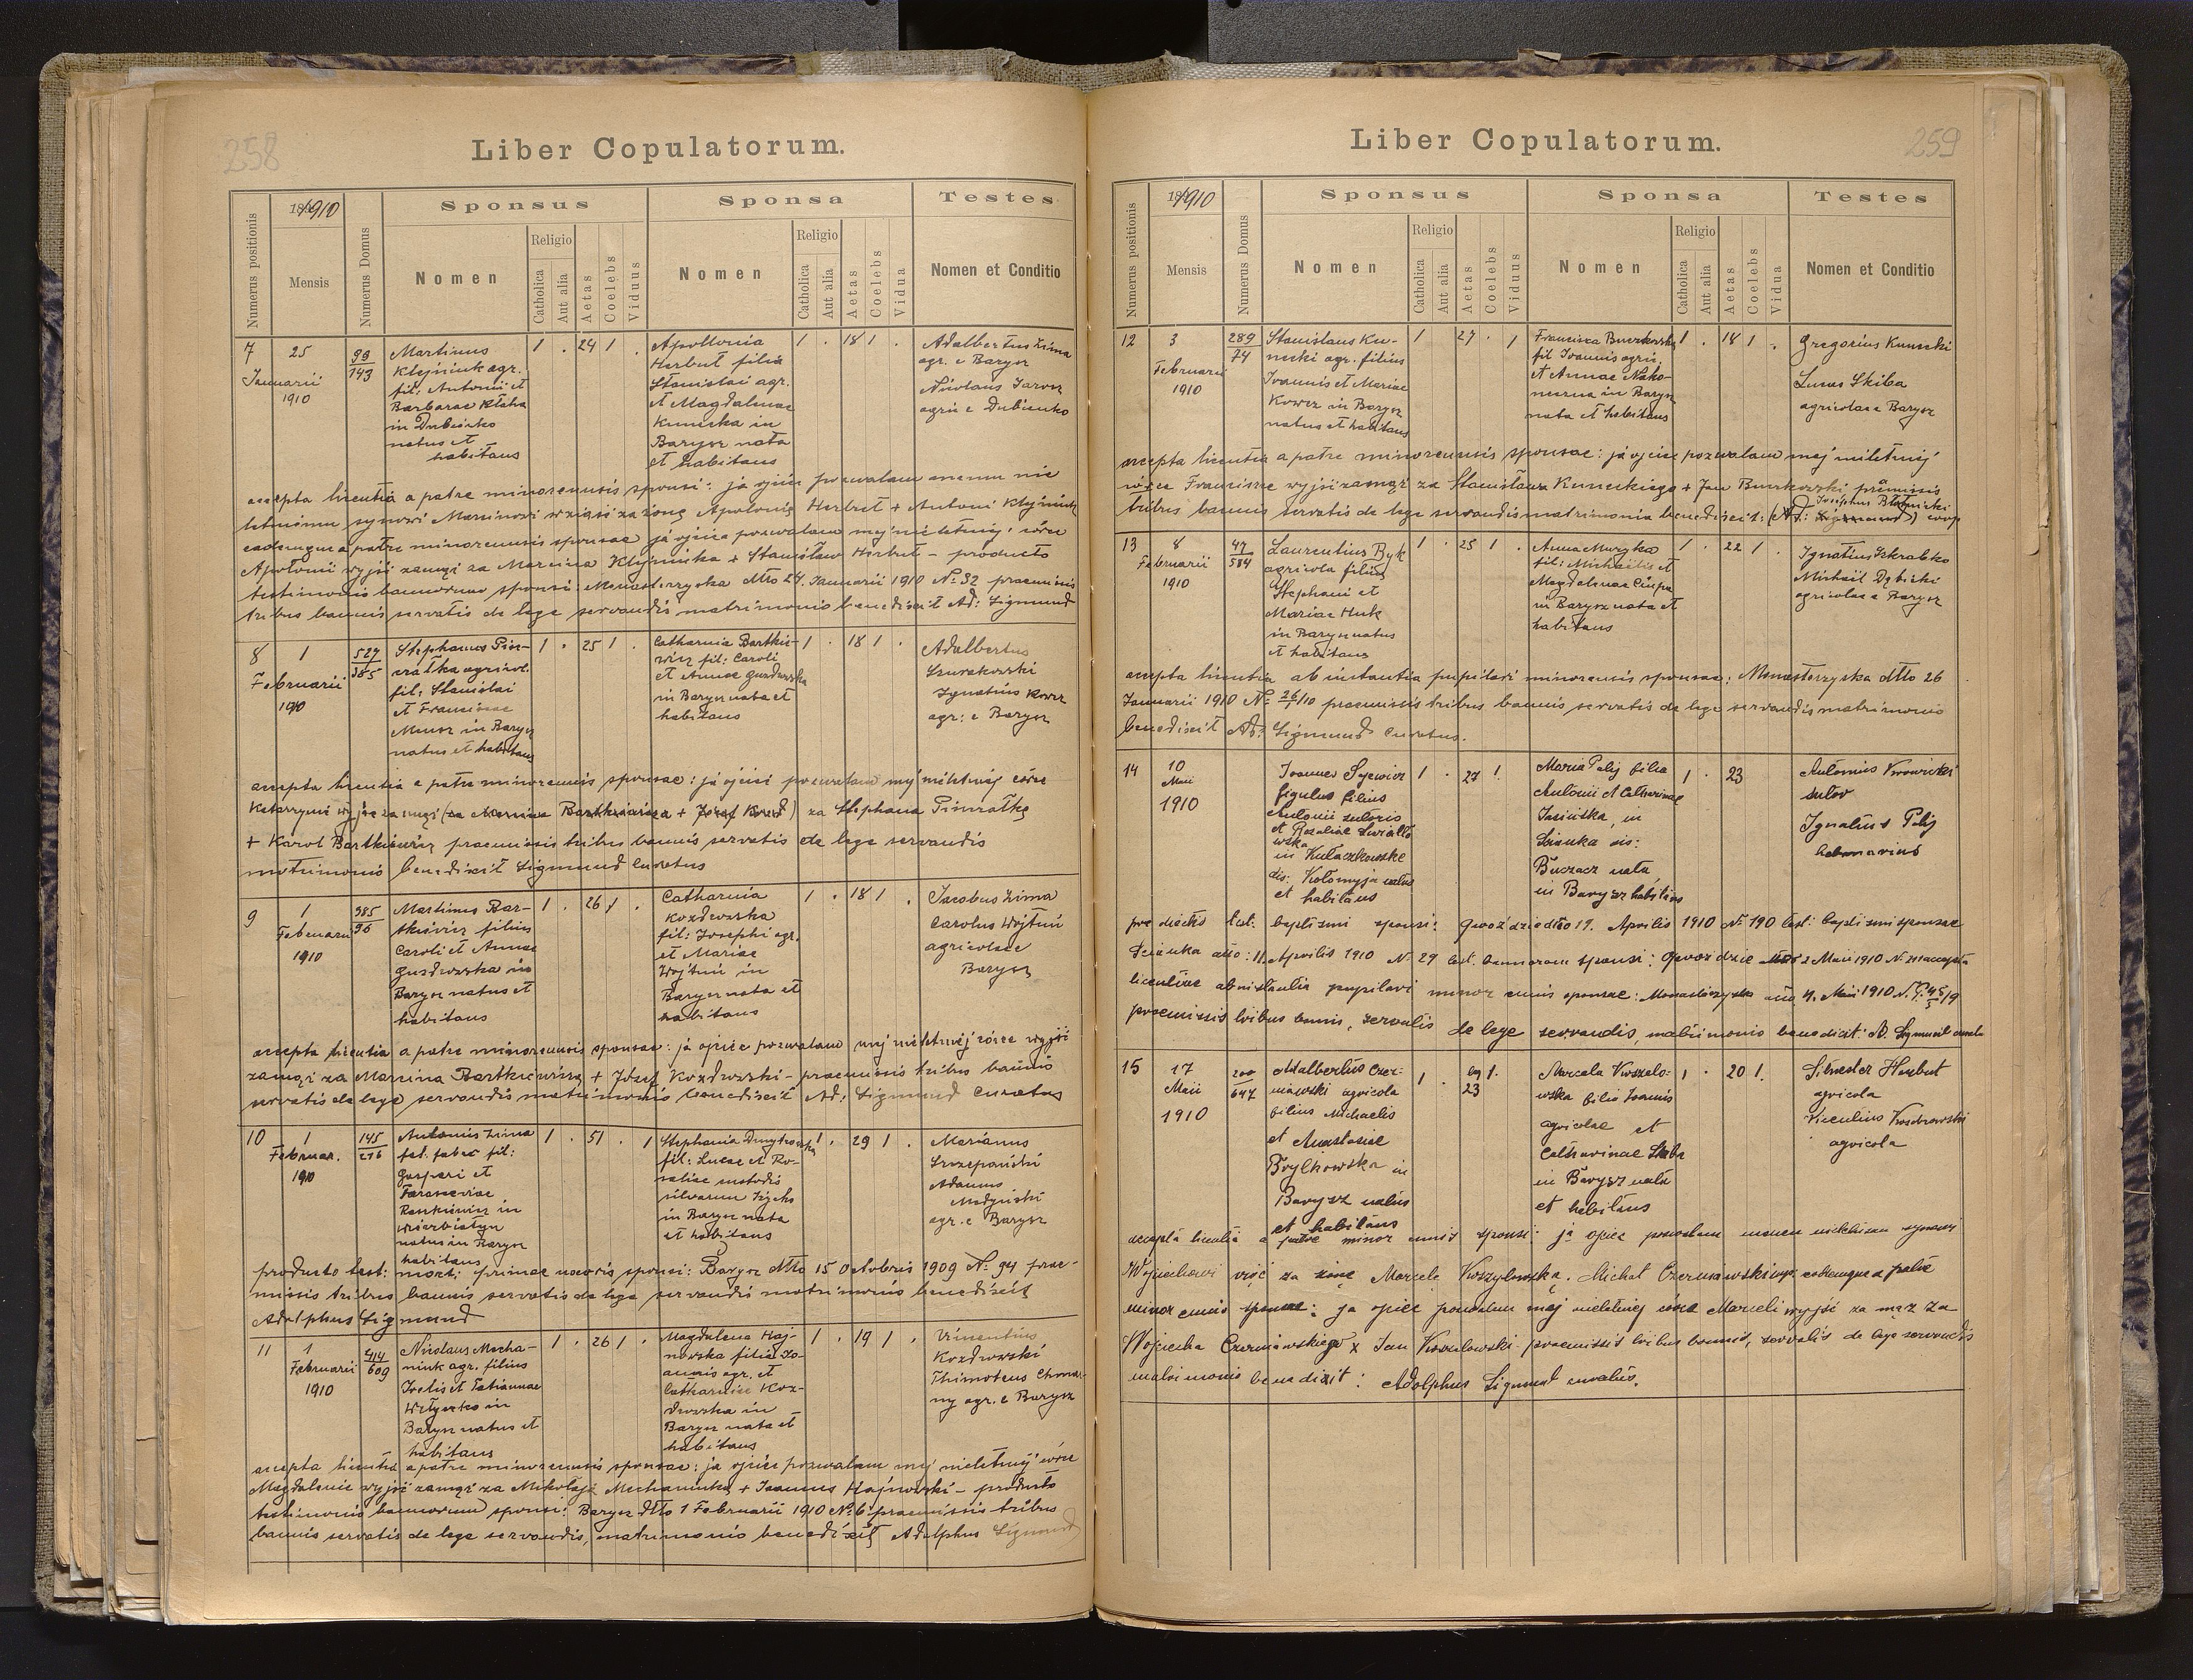 258
Liber Copulatorum.
Numerus positionis
1910
Mensis
Numerus Domus
Sponsus
Nomen
Religio
Catholica
Aut alia
Aetas
Coelebs
Viduus
Sponsa
Nomen
Religio
Catholica
Aut alia
Aetas
Coelebs
Vidua
Testes
Nomen et Conditio
7
25
Januarii
1910
99
143
Martinus
Klejniuk agr.
fil: Antonii et
Barbarae
in Dubienko
natus et
habitans
1 . 24 1 .
Apollonia
Herbut filia
Stanislai agr.
et Magdalenae
Kunicka in
Barysz nata
et habitans
1 . 18 1 .
Adalbertus Zima
agr. e Barysz
Nicolaus Jarosz
agric e Dubienko
accepta licentia a patre minorennis sponsi: ja ojciec pozwalam memu nie
letniemu synowi Marcinowi wziąść za żonę Apolonię Herbut + Antoni
eademque a patre minorennis sponsae ja ojciec pozwalam mej nieletniej córce
Apolonii wyjść zamąż za Marcina + Stanisław Herbut - producto
testimonio bannorum sponsi: Monasterzyska dtto 24. Januarii 1910 N: 32 praemissis
tribus bannis servatis de lege servandis matrimonio benedixit Ad: Sigmund
8
1
Februarii
1910
527
385
Stephanus Pie-
czałka agricol.
fil: Stanislai
et Franciscae
in Barysz
natus et habitans
1 . 25 1 .
Catharina Bartkie-
wicz fil: Caroli
et Annae Guzdrowska
in Barysz nata et
habitans
1 . 18 1 .
Adalbertus
Ignatius Kowcz
agr: e Barysz
accepta licentia a patre minorennis sponsae: ja ojciec pozwalam mej nieletniej córce
Katarzynie wyjść za mąż (za Marcina Bartkiewicza + Józef ) za Stephana
+ Karol Bartkiewicz praemissis tribus bannis servatis de lege servandis
matrimonio benedixit Sigmund curatus
9
1
Februarii
1910
385
96
Martinus Bar-
tkiewicz filius
Caroli et Annae
Guzdrowska in
Barysz natus et
habitans
1 . 26 1 .
Catharina
Kozdrowska
fil: Josephi agr.
et Mariae
Wojtuń in
Barysz nata et
habitans
1 . 18 1 .
Jacobus Zima
Carolus Wojtuń
agricolae
Barysz
accepta licentia a patre minorennis sponsae: ja ojciec pozwalam mej nieletniej córce wyjść
zamąż za Marcina Bartkiewicza + Józef Kozdrowski - praemissis tribus bannis
servatis de lege servandis matrimonio benedixit Ad: Sigmund curatus
10
1
Februar.
1910
145
216
Antonius Zima
fil:
Gaspari et
in
natus in Barysz
habitans
1 . 51 . 1
Stephania
fil: Lucae et Ro-
saliae custodis
silvarum
in Barysz nata
et habitans
1 . 29 1 .
Marianus
Szczepański
Adamus
agr. e Barysz
producto test: mort: primae uxoris sponsi: Barysz dtto 15 Octobris 1909 N: 94 prae-
missis tribus bannis servatis de lege servandis matrimonio benedixit
Adolphus Sigmund
11
1
Februarii
1910
414
609
Nicolaus Mecha-
niuk agr. filius
et Tatiannae
in
Barysz natus et
habitans
1 . 26 1 .
Magdalena Haj-
nowska filia Jo-
annis agr. et
Catharinae Koz-
drowska in
Barysz nata et
habitans
1 . 19 1 .
Vincentius
Kozdrowski
Thimoteus
agr. e Barysz
accepta licentia a patre minorennis sponsae: ja ojciec pozwalam mej nieletniej córce
Magdalenie wyjść zamąż za Mikołaja Mechaniuka + Joannes Hajnowski - producto
testimonio bannorum sponsi: Barysz dtto 1 Februarii 1910 N: 6 praemissis tribus
bannis servatis de lege servandis, matrimonio benedixit Adolphus Sigmund
259
Liber Copulatorum.
Numerus positionis
1910
Mensis
Numerus Domus
Sponsus
Nomen
Religio
Catholica
Aut alia
Aetas
Coelebs
Viduus
Sponsa
Nomen
Religio
Catholica
Aut alia
Aetas
Coelebs
Vidua
Testes
Nomen et Conditio
12
3
Februarii
1910
289
74
Stanislaus Ku-
necki agr. filius
Joannis et Mariae
Kowcz in Barysz
natus et habitans
1 . 27 . 1
Francisca Burzkowska
fil Joannis agric.
et Annae Nako-
neczna in Barysz
nata et habitans
1 . 18 1 .
Gregorius Kunecki
Lucas Skiba
agricolae e Barysz
accepta licentia a patre minorennis sponsae: ja ojciec pozwalam mej nieletniej
córce Franciszce wyjść zamąż za Stanisława Kuneckiego + Jan Burzkowski praemissis
tribus bannis servatis de lege servandis matrimonio benedixit: (Ad: Sigmund) Josephus coop
13
8
Februarii
1910
47
584
Laurentius Byk
agricola filius
Stephani et
Mariae Huk
in Barysz natus
et habitans
1 . 25 1 .
Anna Muzyka
fil: Michaelis et
Magdalenae
in Barysz nata et
habitans
1 . 22 1 .
Ignatius Szkrabko
Michael Dębicki
agricolae e Barysz
accepta licentia ab instantia pupilari minorennis sponsae: Monasterzyska dtto 26
Januarii 1910 N: 26/10 praemissis tribus bannis servatis de lege servandis matrimonio
benedixit Ad: Sigmund curatus.
14
10
Maii
1910
Joannes
figulus filius
Antonii sutoris
et Rosaliae
in Kułaczkowce
dis: Kołomyja natus
et habitans
1 . 27 1.
Maria Palij filia
Antonii et Catharinae
Jasińska, in
dis:
Buczacz nata,
in Barysz habitans
1 . 23
Antonius
sutor
Ignatius Palij
productis test. baptismi sponsi: Gwoździec dtto 19. Aprilis 1910 N: 190 test: baptismi sponsae
dtto: 11 Aprilis 1910 N: 29 test. bannorum sponsi: Gwoździec 2 Maii 1910 N: accepta
licentiae ab instantia pupilari minorennis sponsae: Monasterzyska dtto 4. Maii 1910 N:
praemissis tribus bannis, servatis de lege servandis, matrimonio benedixit: A. Sigmund curatus
15
17
Maii
1910
200
647
Adalbertus Czer-
niawski agricola
filius Michaelis
et Anastasiae
Brylkowska in
Barysz natus
et habitans
1 . 23 1.
Marcela Koszelo-
wska filia Joannis
agricolae et
Catharinae Skiba
in Barysz nata
et habitans
1 . 20 1.
Silvester Herbut
agricola
Vicentius Kozdrowski
agricola
accepta licentia a patre minorennis sponsi: ja ojciec pozwalam memu nieletniemu synowi
Wojciechowi wziąć za żonę Marcelę Koszylowską. Michał Czerniawski eademque a patre
minorennis sponsae: ja ojciec pozwalam mej nieletniej córce Marceli wyjść za mąż za
Wojciecha Czerniawskiego x Jan Koszelowski praemissis tribus bannis, servatis de lege servandis
matrimonio benedixit: Adolphus Sigmund curatus.